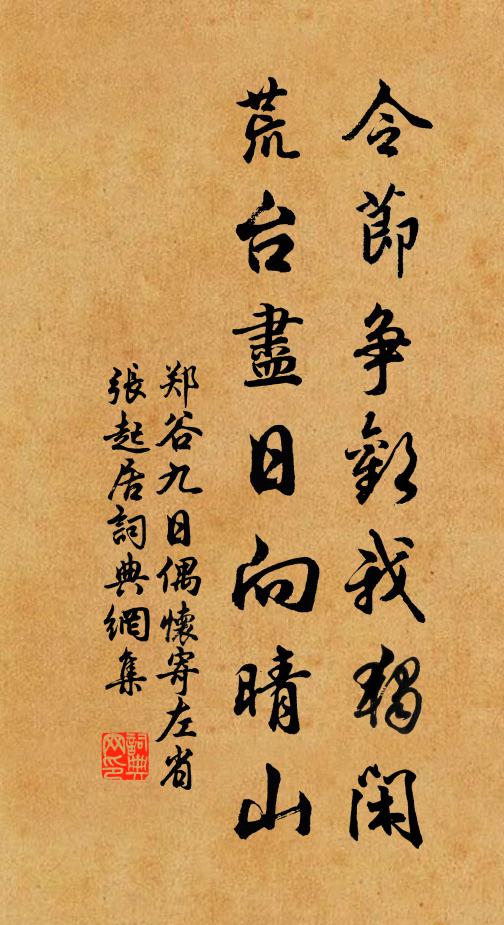 令節争歡我獨閑
荒台盡日向晴山
郑谷九日偶懷寄左省
張起居詞典網集
詞典
网印